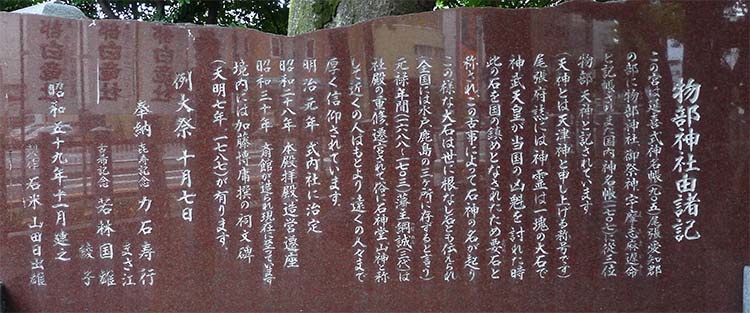 物部神社由諸記
この宮は延喜式神名帳(九〇五)尾張愛知郡
の部に物部神社 御祭神 宇摩志麻遅命
と記帳されまた国内神名帳(一七〇七)従三位
物部天神と記されています
(天神とは天津神と申し上げる称号です)
尾張府誌には神霊は一塊の大石で
神武天皇が当国の凶魁を討れた時
此の石を国の鎮めとなされたため要石と
称されこの古事によって石神の名が起り
この様な大石は世に根なし石とも伝えられ
(全国には水戸鹿島の三ヶ所に存すると言う)
元禄年間(一六八八-一七〇三)藩主綱誠(三代)は
社殿の重修、遷宮され俗に石神堂、山神と称
して近くの人はもとより遠くの人々まで
厚く信仰されています。
明治元年 式内社に治定
昭和二十八年 本殿拝殿造営遷座
昭和三十年 斎館が造られ現在に至っている
境内には加藤博庸撰の祠文碑
(天明七年 一七八七)が有ります。
例大祭 十月七日
奉納 喜寿記念 力石寿行
まさ江
古希記念 若林国雄
綾子
昭和五十九年十一月建之
石米 山田日出雄